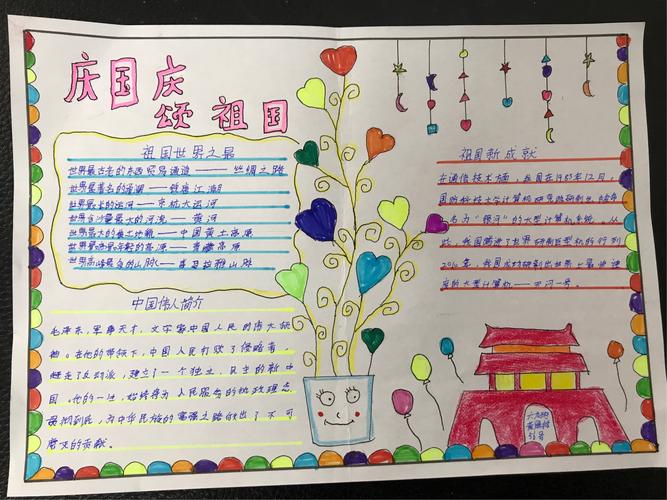 庆国庆
颂祖国
祖国世界之最
世界最古老的东西贸易通道——丝绸之路
世界最著名的涌潮——钱塘江潮
世界最长的运河——京杭大运河
世界含沙量最大的河流——黄河
世界最大的黄土地貌——中国黄土高原
世界最高最年轻的高原——青藏高原
世界高峰最多的山脉——喜马拉雅山脉
中国伟人简介
毛泽东，军事天才，文学家中国人民的伟大领
袖。在他的带领下，中国人民打败了侵略者，
赶走了反动派，建立了一个独立，民主的新中
国。他的一生，始终将为人民服务的执政理念
贯彻到底，为中华民族的富强之路做出了不可
磨灭的贡献。
祖国新成就
在通信技术方面，我国在1983年12月，
国防科技大学计算机研究所研制出
名为"银河"的大型计算机系统，从
此，我国跨进了世界研制巨型机的行列
2010年，我国成功研制出世界上最快速
度的大型计算机——天河一号。